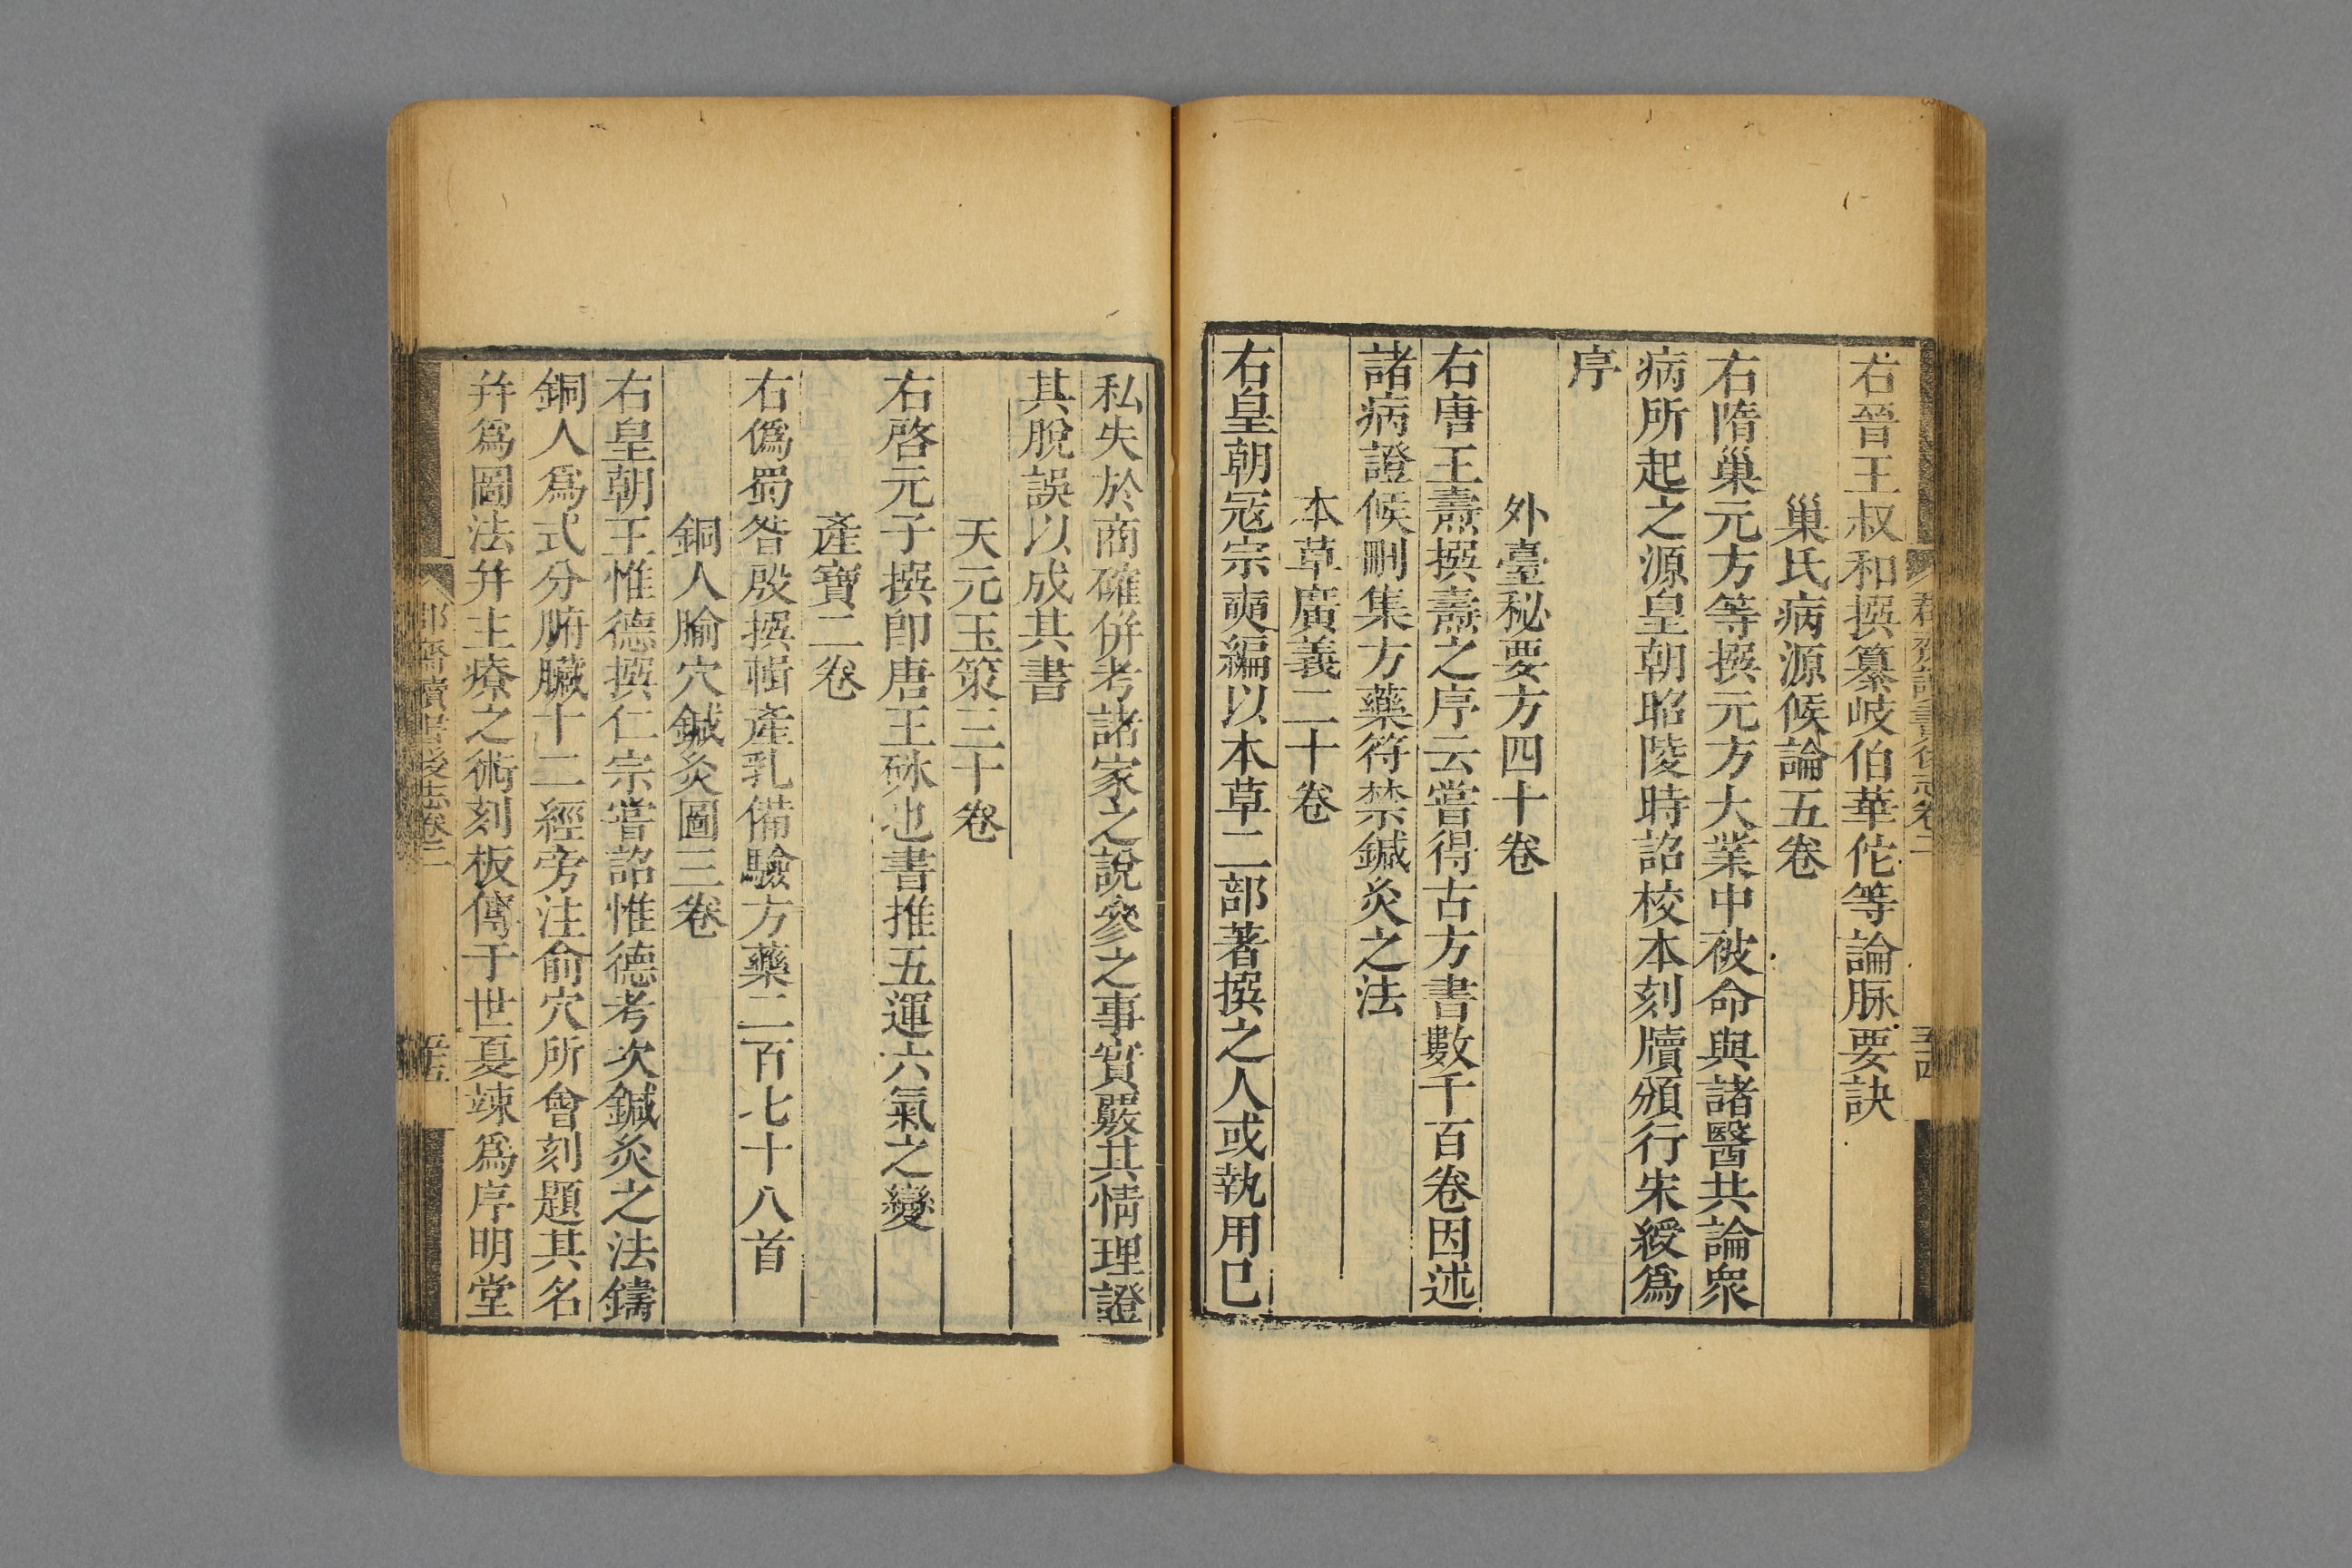 右晉王叔和撰纂岐伯華佗等論脉要訣
巢氏病源候論五卷
右隋巢元方等撰元方大業中被命與諸醫共論衆
病所起之源皇朝昭陵時詔校本刻牘頒行宋綬爲
序
外臺秘要方四十卷
右唐王燾撰燾之序云嘗得古方書數千百卷因述
諸病證候刪集方藥符禁鍼灸之法
本草廣義二十卷
右皇朝寇宗奭編以本草二部著撰之人或執用已
私失於商確併考諸家之說參之事實覈其情理證
其脫誤以成其書
天元玉策三十卷
右啓元子撰即唐王砅也書推五運六氣之變
產寶二卷
右僞蜀昝殷撰輯產乳備驗方藥二百七十八首
銅人腧穴鍼灸圖三卷
右皇朝王惟德撰仁宗嘗詔惟德考次鍼灸之法鑄
銅人爲式分腑臟十二經旁注俞穴所會刻題其名
并爲圖法并主療之術刻板傳于世夏竦爲序明堂
讀書後志卷二